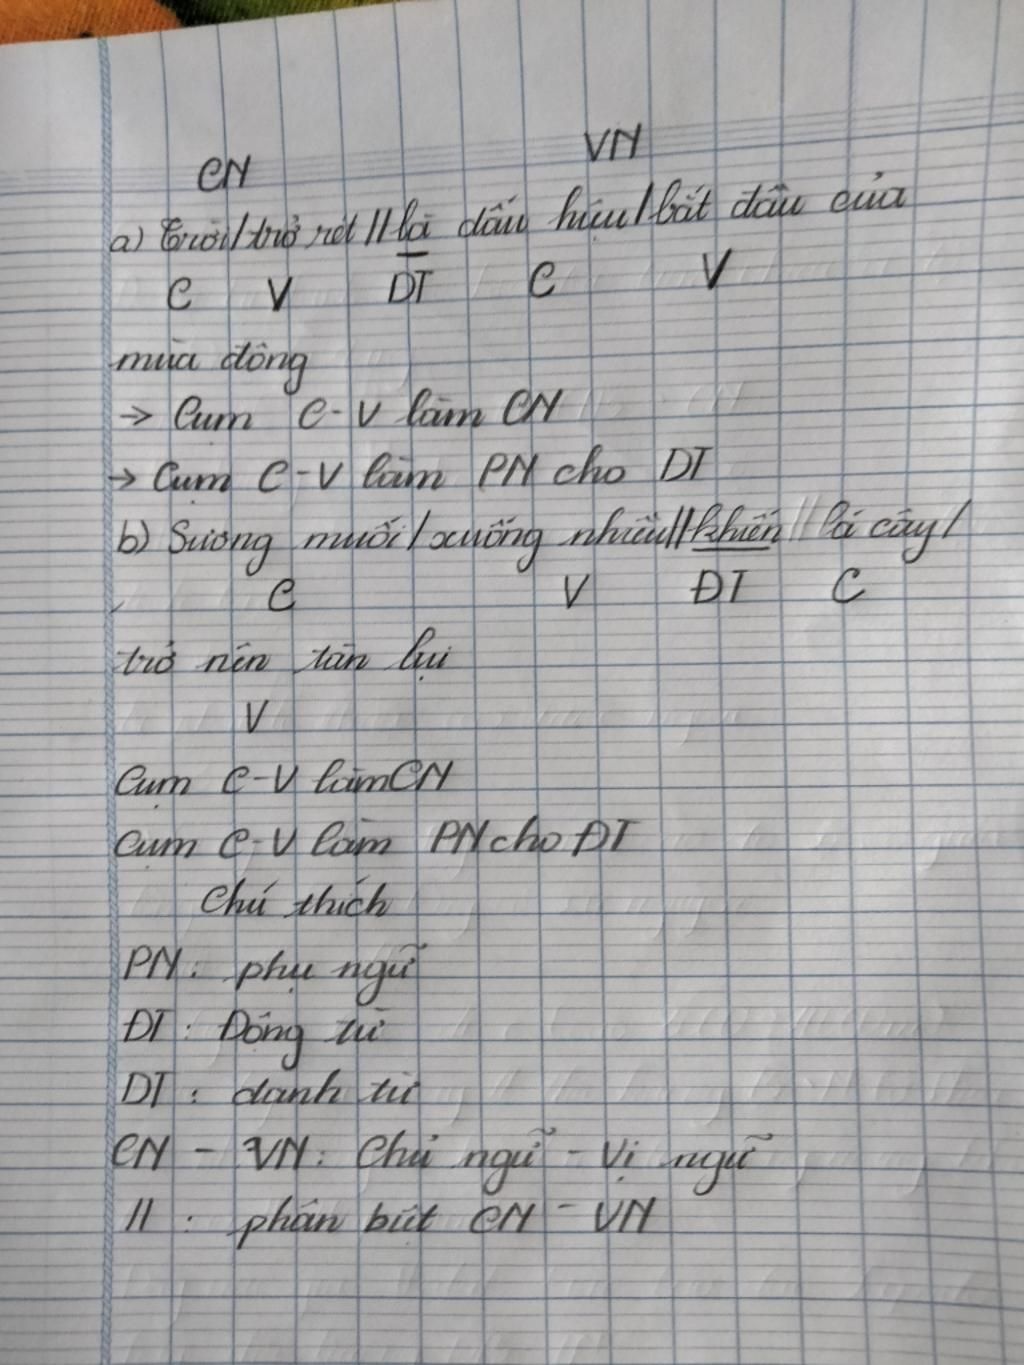 CN VN
a) Trời/trở rét//là dấu hiệu/bắt đầu của
C V DT C V
mùa đông
→ Cụm C-V làm CN
→ Cụm C-V làm PN cho DT
b) Sương muối/xuống nhiều//khiến//lá cây/
C V ĐT C
trở nên tàn lụi
V
Cụm C-V làm CN
Cụm C-V làm PN cho ĐT
Chú thích
PN: phụ ngữ
ĐT: Động từ
DT: danh từ
CN - VN: Chủ ngữ - Vị ngữ
//: phân biệt CN - VN